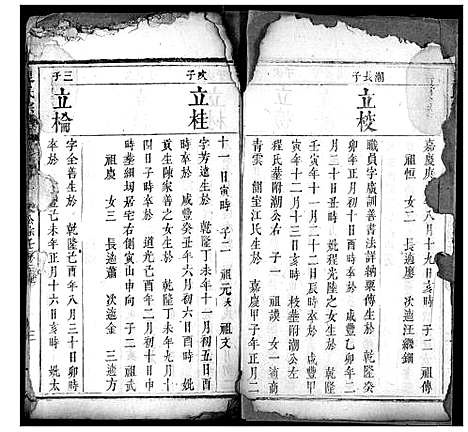 嘉慶 八月十九日亥時 子二 祖傳
祖恒 女二 長適廖 次適汪繼錫
潮長子
立校
職員字廣訓善書法詳納粟傳生於 乾隆癸
卯年正月初十日辰時 歿於 咸豐乙卯年二
月二十日丑時 妣程光陞之女生於 乾隆
壬寅年十一月二十二日辰時 歿於 咸豐甲
寅年十二月十三日寅時 枝葬附潮公左
程氏葬附潮公右 子一 祖謨 女一適商
青雲 側室江氏生於 嘉慶甲子年正月二
十一日寅時 子二 祖元 祖文
次子
立桂
字芳遠生於 乾隆丁未年十一月初五日酉
時 歿於 咸豐癸丑年六月初六日酉時 妣
貢生陳家善之女生於 乾隆丁未年九月十
四日子時 歿於 道光己酉年二月初六日子
時 葬細坳居宅右側寅山申向 子二 祖武
祖慶 女三 長適蕭 次適金 三適方
三子
立棆
字金善生於 乾隆己酉年八月三十日卯時
歿於 己未年正月十六日亥時 妣太